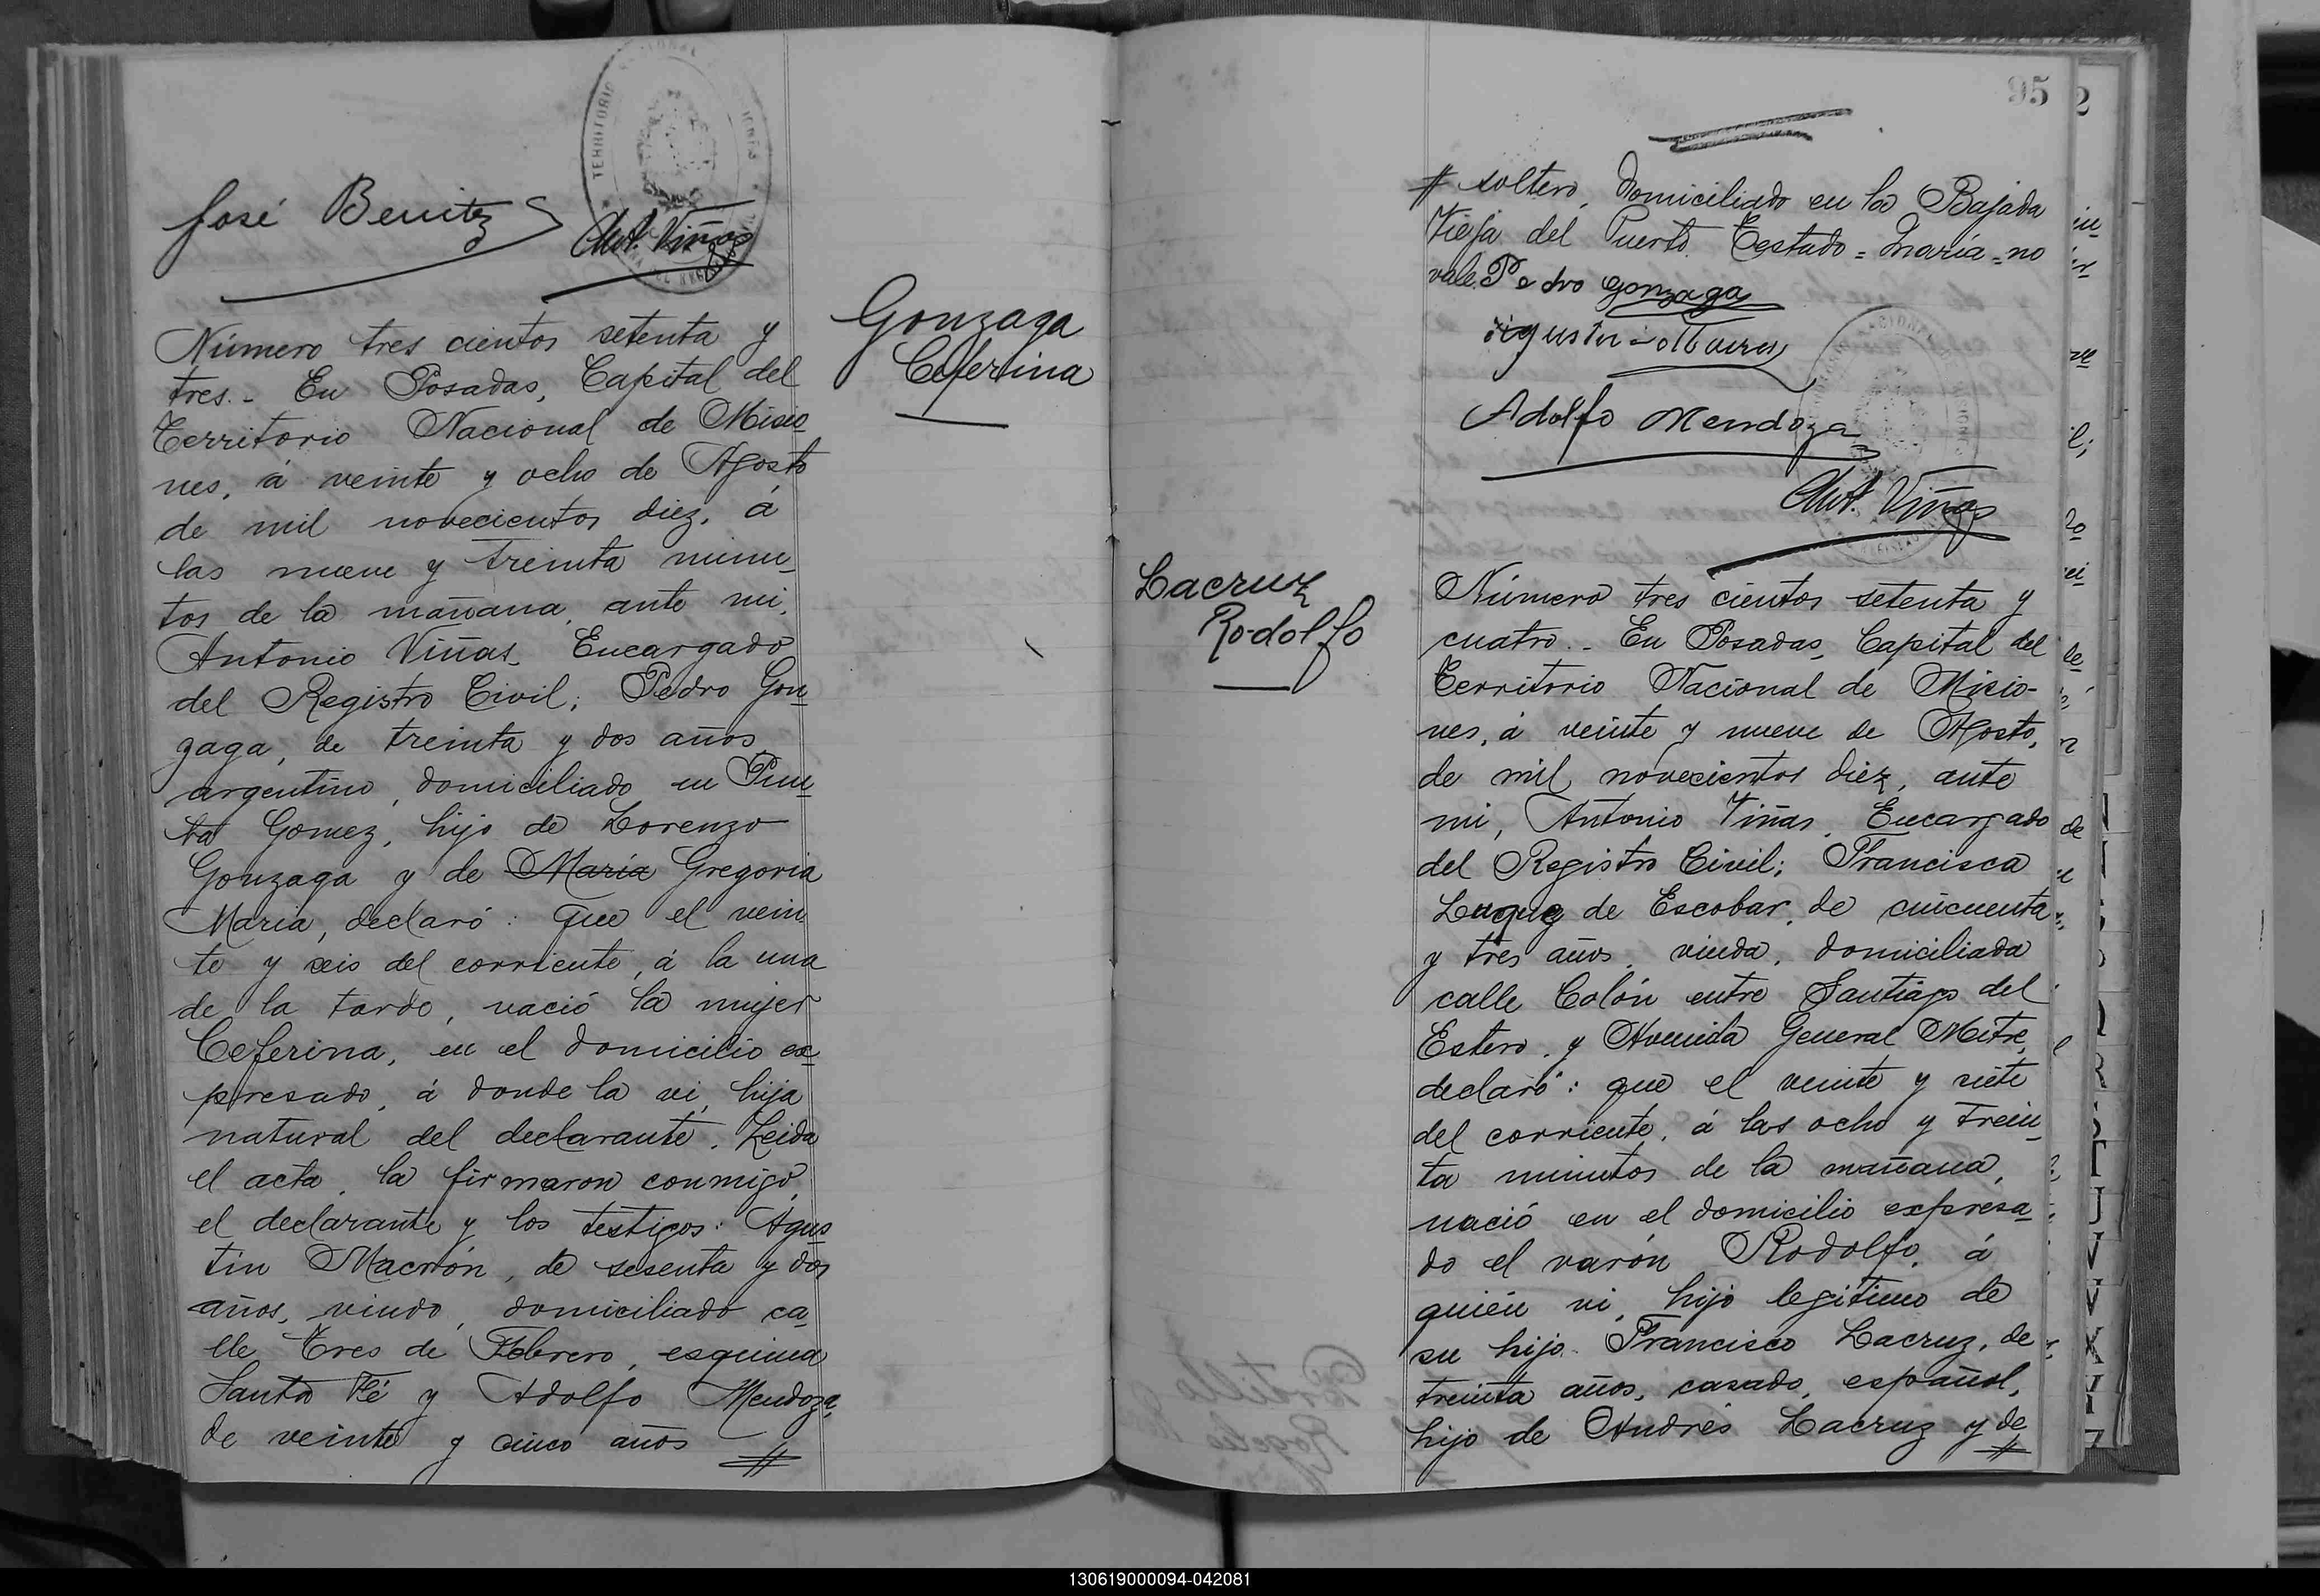 José Benitez
Ant. Viñas
Gonzaga
Ceferina
Número tres cientos setenta y
tres.- En Posadas, Capital del
Territorio Nacional de Misio_
nes, á veinte y ocho de Agosto
de mil novecientos diez, á
las nueve y treinta minu_
tos de la mañana, ante mi,
Antonio Viñas, Encargado
del Registro Civil; Pedro Gon_
zaga, de treinta y dos años
argentino, domiciliado en Pun_
ta Gomez, hijo de Lorenzo
Gonzaga y de María Gregoria
Maria, declaró: que el vein_
te y seis del corriente, á la una
de la tarde, nació la mujer
Ceferina, en el domicilio ex_
presado, á donde la vi, hija
natural del declarante. Leida
el acta, la firmaron conmigo,
el declarante y los testigos: Agus_
tin, de sesenta y dos
años, viudo, domiciliado ca_
lle Tres de Febrero, esquina
Santa Fé y Adolfo Mendoza,
de veinte y cinco años #
95
# soltero, domiciliado en la Bajada
Vieja del Puerto. Testado = María = no
vale. Pedro Gonzaga
Adolfo Mendoza
Ant. Viñas
Lacruz
Rodolfo
Número tres cientos setenta y
cuatro.- En Posadas, Capital del
Territorio Nacional de Misio-
nes, á veinte y nueve de Agosto,
de mil novecientos diez, ante
mi, Antonio Viñas, Encargado
del Registro Civil; Francisca
Luque de Escobar, de cincuenta
y tres años, viuda, domiciliada
calle Colón entre Santiago del
Estero y Avenida General Mitre,
declaró: que el veinte y siete
del corriente, á las ocho y trein_
ta minutos de la mañana,
nació en el domicilio expresa_
do el varón Rodolfo, á
quién vi, hijo legitimo de
su hijo Francisco Lacruz, de
treinta años, casado, español,
hijo de Andrés Lacruz y de #
130619000094-042081